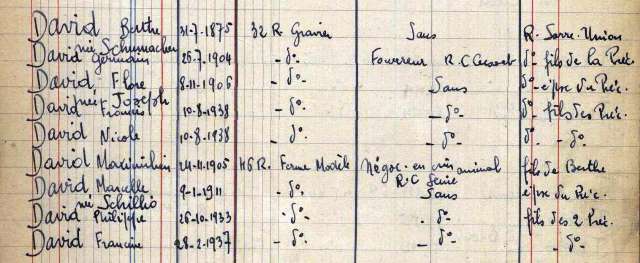 David Berthe 31-7-1875 32 R Gravier Sans R. Sarre-Union
née Schumacher
David Germain 26-7-1904 - d°- Fourreur R.C d°- fils de la Préc.
David Flore 8-11-1906 - d°- Sans d°- épse du Préc.
née Joseph
David Francis 10-8-1938 - d°- - d°- d°- fils des Préc.
David Nicole 10-8-1938 - d°- - d°- d°- - d°-
David Maximilien 24-11-1905 46 R. Ferme Modèle Négoc. en crin animal fils de Berthe
R.C Seine
David Marcelle 9-1-1911 - d°- Sans épse du Préc.
née Schillio
David Philippe 26-10-1933 - d°- - d°- fils des 2 Préc.
David Francine 28-2-1937 - d°- - d°- - d°-